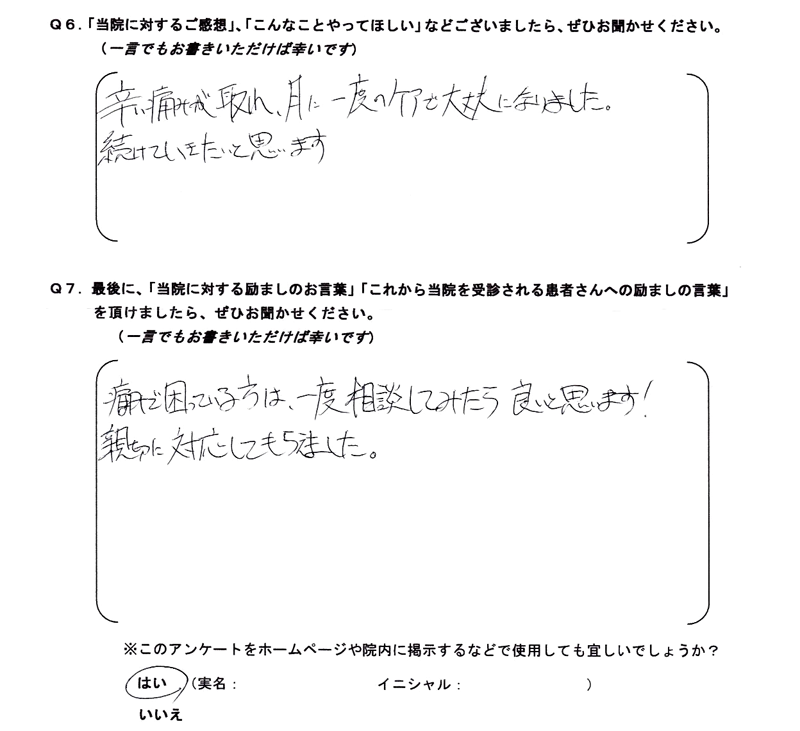 Q6.「当院に対するご感想」、「こんなことやってほしい」などございましたら、ぜひお聞かせください。
（一言でもお書きいただけば幸いです）
辛い痛みが取れ、月に一度のケアで大丈夫になりました。
続けていきたいと思います
Q7. 最後に、「当院に対する励ましのお言葉」「これから当院を受診される患者さんへの励ましの言葉」
を頂けましたら、ぜひお聞かせください。
（一言でもお書きいただけば幸いです）
痛みで困っている方は、一度相談してみたら良いと思います！
親切に対応してもらえました。
※このアンケートをホームページや院内に掲示するなどで使用しても宜しいでしょうか？
はい （実名： イニシャル： ）
いいえ